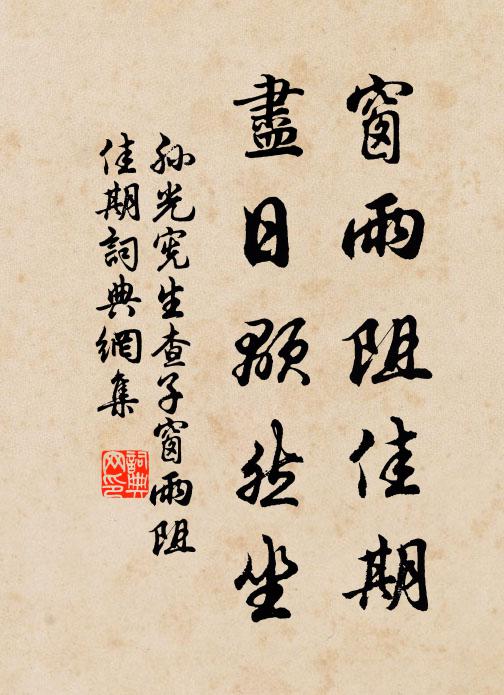 窗雨阻佳期
盡日顒然坐
孫光宪生查子窗雨阻
佳期詞典網集
詞典
网印